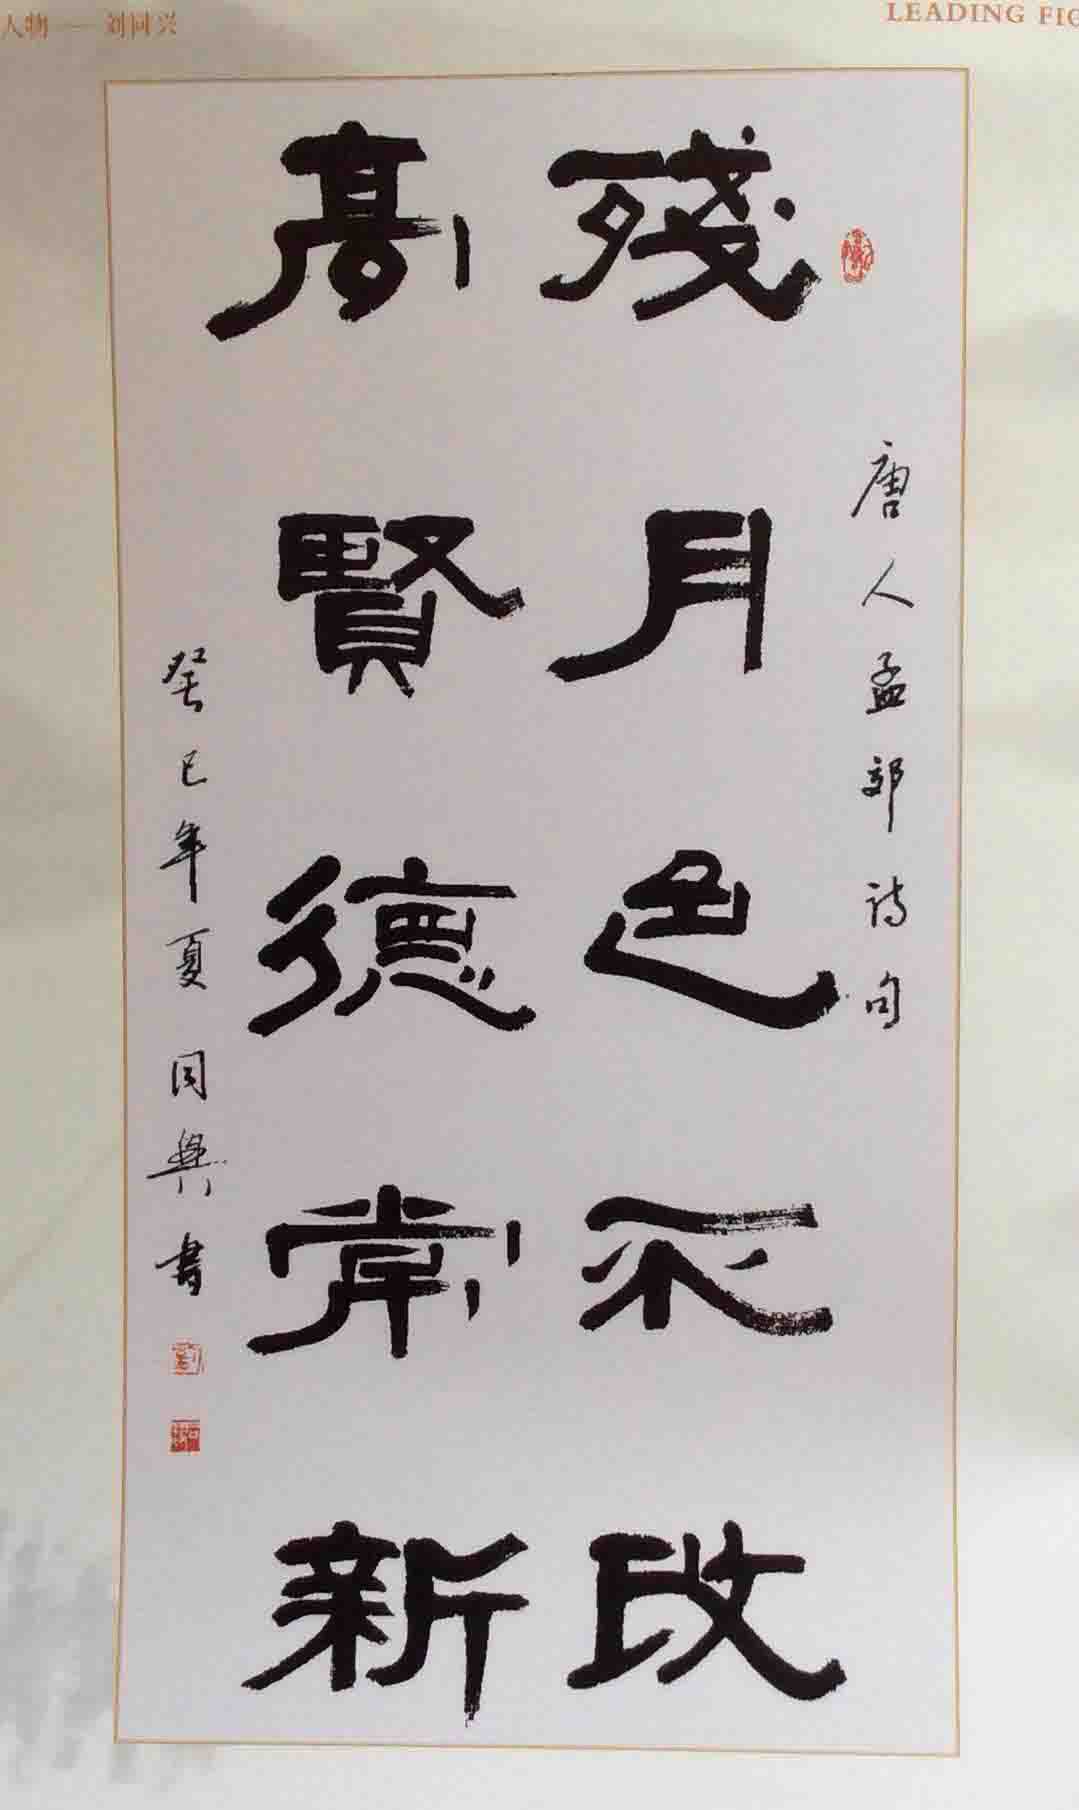 人物 — 刘同兴
LEADING FIG
唐人孟郊诗句
殘月色不改
高賢德常新
癸巳年夏同興書